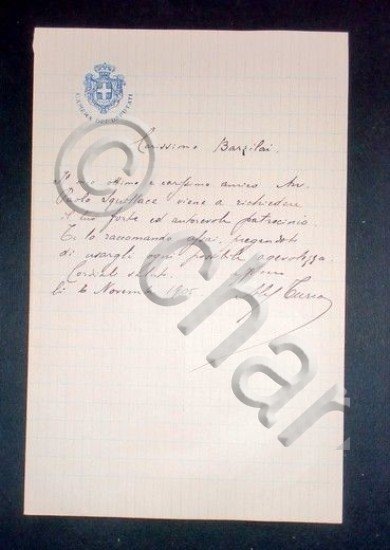 CAMERA DEI DEPUTATI
Carissimo Barzilai.
ottimo e carissimo amico
Paolo Squillace viene a richiedere
il tuo forte ed autorevole patrocinio.
Te lo raccomando assai, pregandoti
di usargli ogni possibile agevolezza.
Cordiali saluti.
li 2 Novembre 1905.
© char